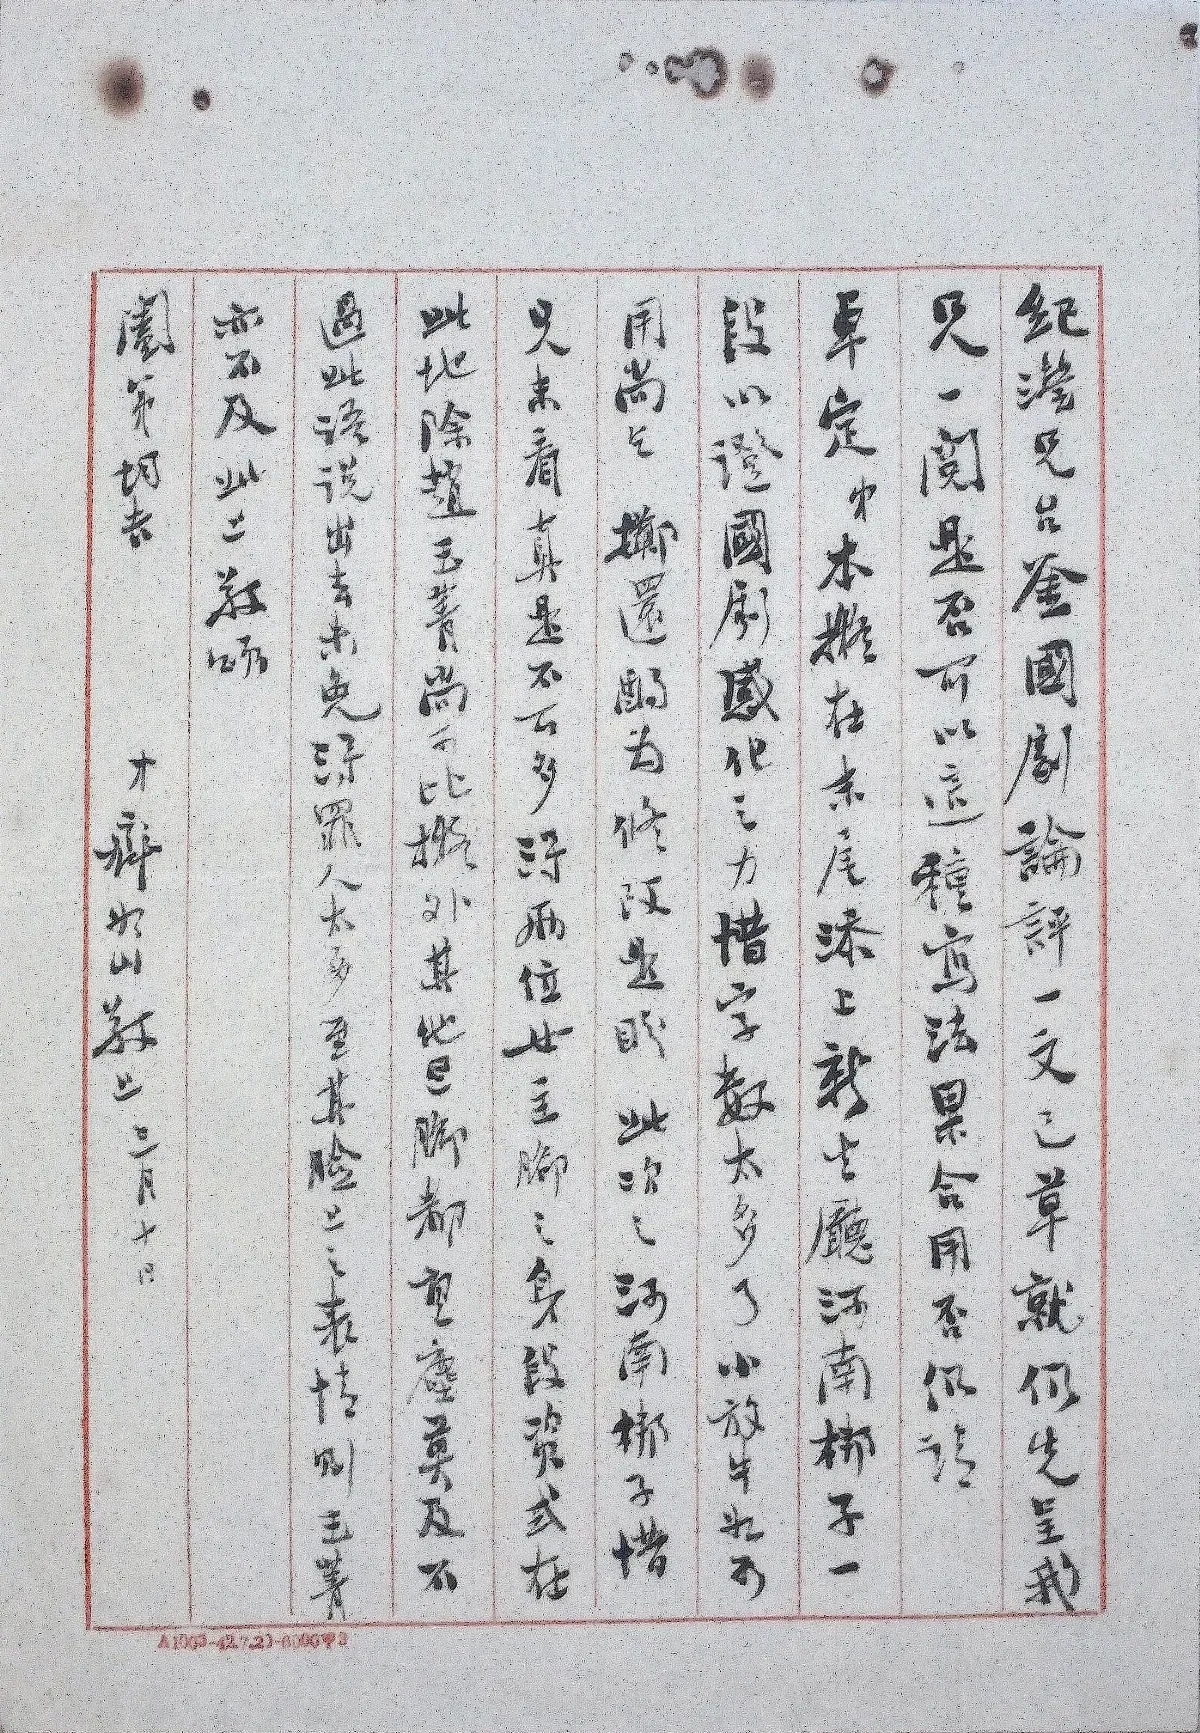 紀瀅兄台鉴國劇論評一文已草就似先呈我
兄一閱是否可以這種寫法果合用否仍請
卓定弟本擬在末尾添上新生廳河南梆子一
段以證國劇感化之力惜字數太多了小放牛如可
用尚乞 擲還酌為修改是盼 此次之河南梆子惜
兄未看真是不可多得兩位女主腳之身段姿式在
此地除趙玉菁尚可比擬外其他旦腳都望塵莫及不
過此語說出去未免得罪人太多至其臉上之表情則玉菁
亦不及此上敬頌
闔第均吉
弟齊如山敬上 三月十日
A1003-42.7.21-6000